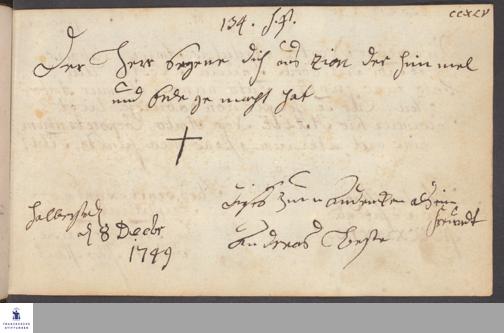 CCXCV
134. ψ.
Der Herr segene dich aus zion der himmel
und erde gemacht hat
Halberstadt
d 8 Decbr
1749
dieses zum andencken als ein
freundt
Andreas
FRANCKESCHE
STIFTUNGEN